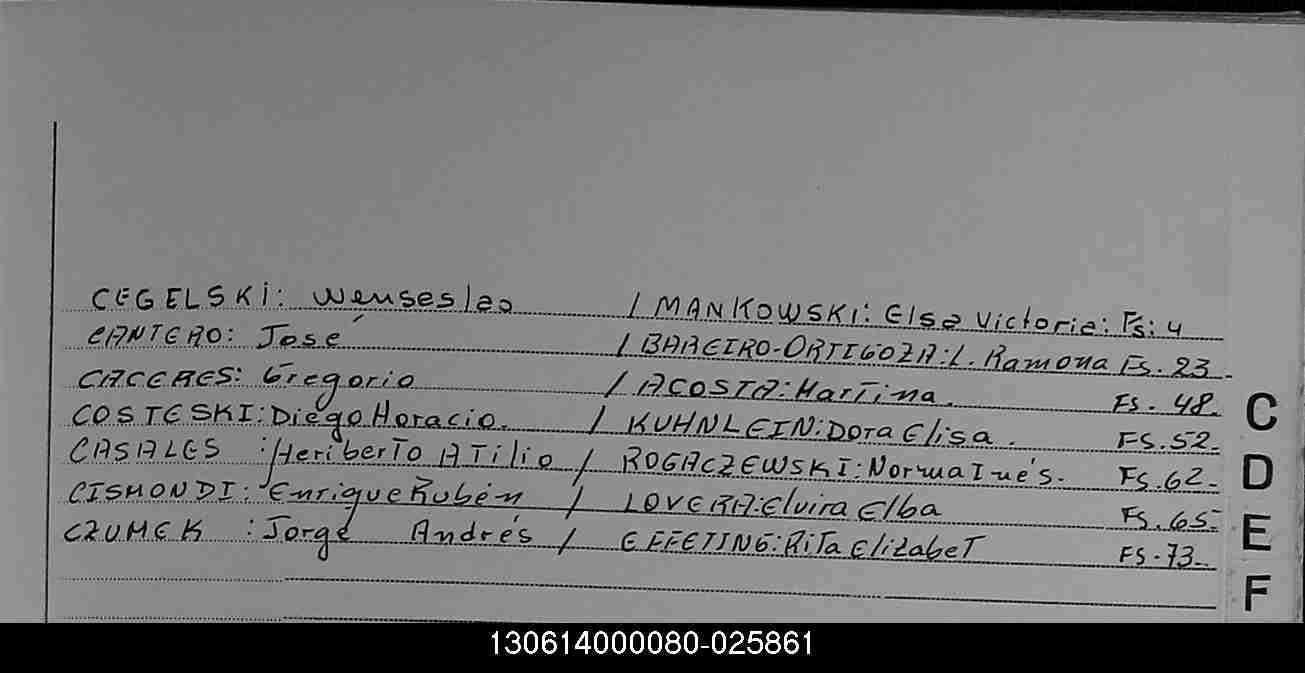 CEGELSKI: Wenseslao / MANKOWSKI: Elsa Victoria: Fs: 4
CANTERO: José / BAREIRO-ORTIGOZA: L. Ramona Fs. 23.
CACERES: Gregorio / ACOSTA: Martina. FS. 48.
COSTESKI: Diego Horacio. / KUHNLEIN: Dora Elisa. FS. 52.
CASALES : Heriberto Atilio / ROGACZEWSKI: Norma Inés. Fs. 62.
CISMONDI: Enrique Rubén / LOVERA: Elvira Elba Fs. 65.
CZUMEK : Jorge Andrés / EFFETING: Rita Elizabet FS. 73.
C
D
E
F
130614000080-025861